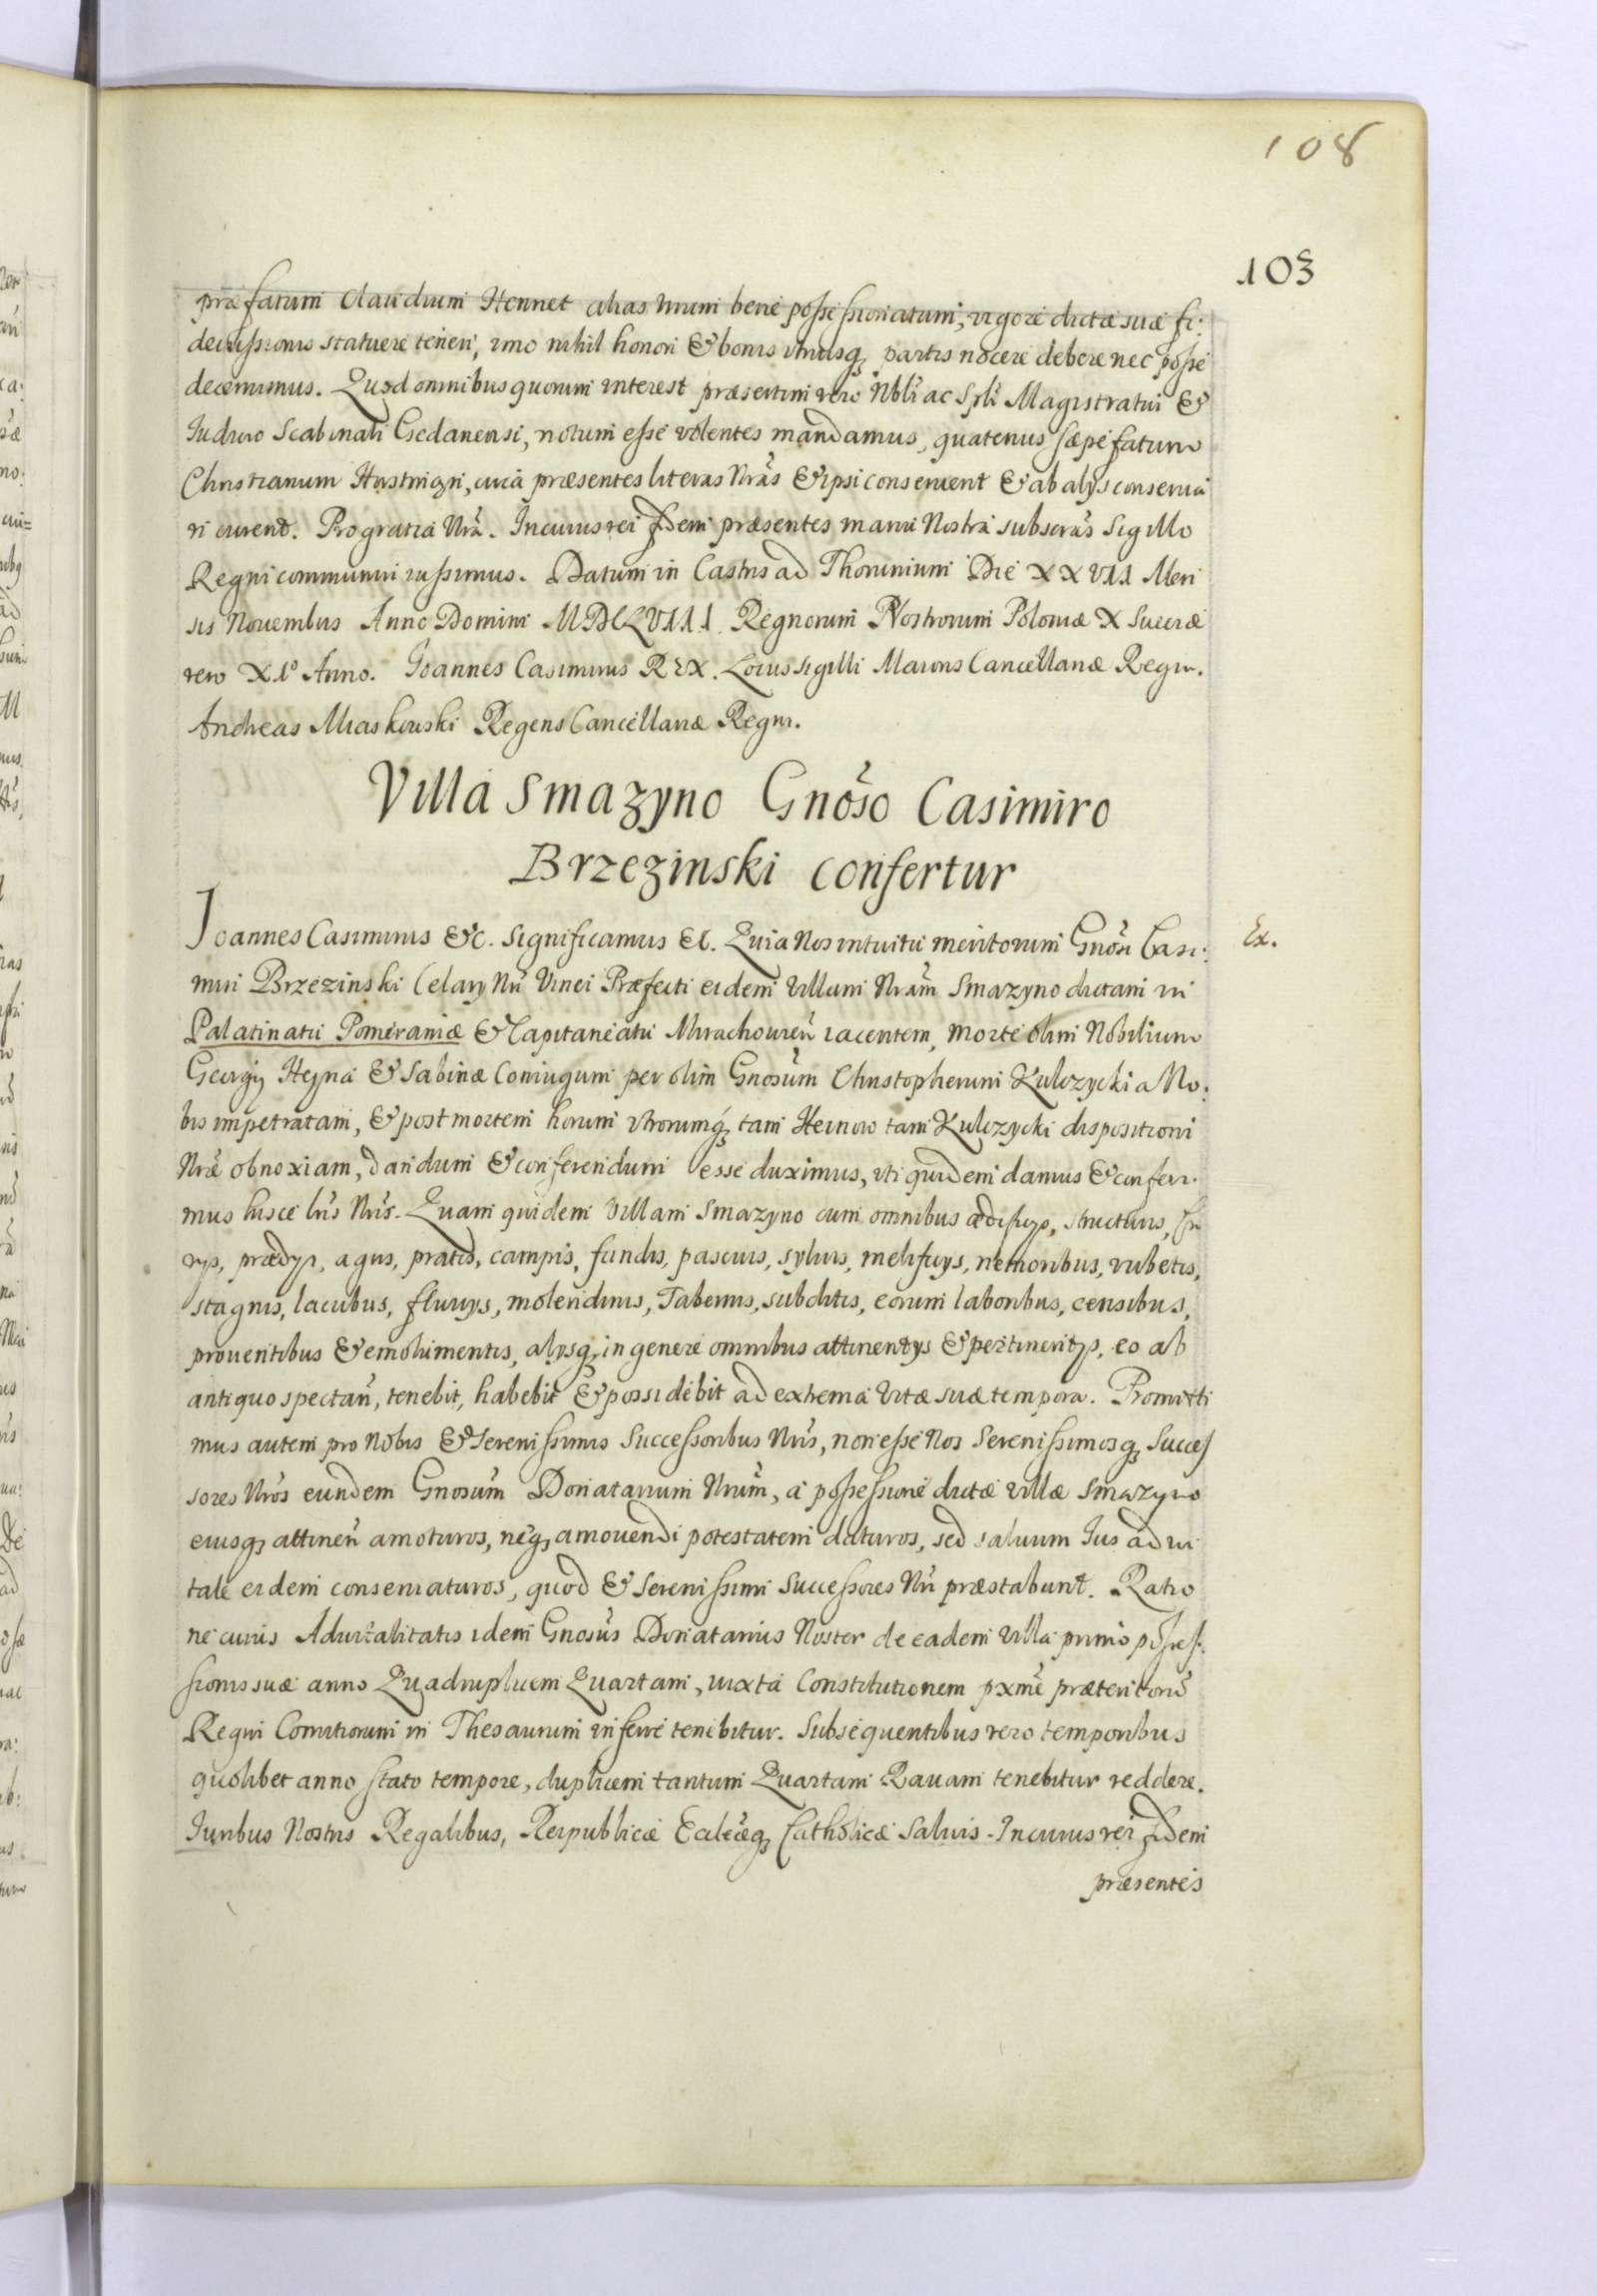 108
103
præfatum Claudium Hennet alias Virum bene possessionatum, vigore dictæ suæ fi:
deiussionis statuere teneri, imo nihil honori & bonis vtriusq₃ partis nocere debere nec posse
decernimus. Quod omnibus quorum interest præsertim vero Nbli ac Spli Magistratui &
Iudicio Scabinali Gedanensi, notum esse volentes mandamus, quatenus sæpefatum
Christianum circa præsentes literas Nrãs & ipsi conseruent & ab alijs conserua
ri curent. Pro gratia Nrã. In cuius rei fidem præsentes manu Nostra subscrãs Sigillo
Regni communiri iussimus. Datum in Castris ad Thorunium Die XXVII Men
sis Nouembris Anno Domini MDCLVIII. Regnorum Nostrorum Poloniæ X Sueciæ
vero XIº Anno. Ioannes Casimirus REX. Locus sigilli Maioris Cancellariæ Regni.
Andreas Miaskowski Regens Cancellariæ Regni.
Villa Smazyno Gnõso Casimiro
Brzezinski confertur
Ex.
Ioannes Casimirus &c. Significamus &c. Quia Nos intuitu meritorum Gnõsi Casi:
miri Brzezinski Celarij Nri Vinei Præfecti eidem Villam Nrãm Smazyno dictam in
Palatinatu Pomeraniæ & Capitaneatu Mirachouieñ iacentem, morte olim Nobilium
Georgij Heyna & Sabinæ Coniugum per olim Gnosum Christopherum Kulczycki a No:
bis impetratam, & post mortem horum vtrorumq₃ tam Heinow tam Kulczycki dispositioni
Nræ obnoxiam, dandum & conferendum esse duximus, vti quidem damus & conferi:
mus hisce lris Nris. Quam quidem Villam Smazyno cum omnibus ædificijs, structuris,
prædijs, agris, pratis, campis, fundis, pascuis, syluis, melificijs, nemoribus, rubetis,
stagnis, lacubus, fluuijs, molendinis, Tabernis, subditis, eorum laboribus, censibus,
prouentibus & emolumentis, alijsq₃ in genere omnibus attinentijs & pertinentijs, eo ab
antiquo spectañ, tenebit, habebit & possidebit ad extrema vitæ suæ tempora. Promitti
mus autem pro Nobis & Serenissimis Successoribus Nris, non esse Nos Serenissimosq₃ Succes
sores Nros eundem Gnosum Donatarium Nrum, a possessione dictæ villæ Smazyno
eiusq₃ attineñ amoturos, neq₃ amouendi potestatem daturos, sed saluum Ius adui
tale eidem conseruaturos, quod & Serenissimi Successores Nri præstabunt. Ratio
ne cuius Aduitalitatis idem Gnosus Donatarius Noster de eadem villa primo posses:
sionis suæ anno Quadruplicem Quartam, iuxta Constitutionem pxme præteritorũ
Regni Comitiorum in Thesaurum inferre tenebitur. Subsequentibus vero temporibus
quolibet anno stato tempore, duplicem tantum Quartam Rauam tenebitur reddere.
Iuribus Nostris Regalibus, Reipublicæ Ecclæq₃ Catholicæ saluis. In cuius rei fidem
præsentes